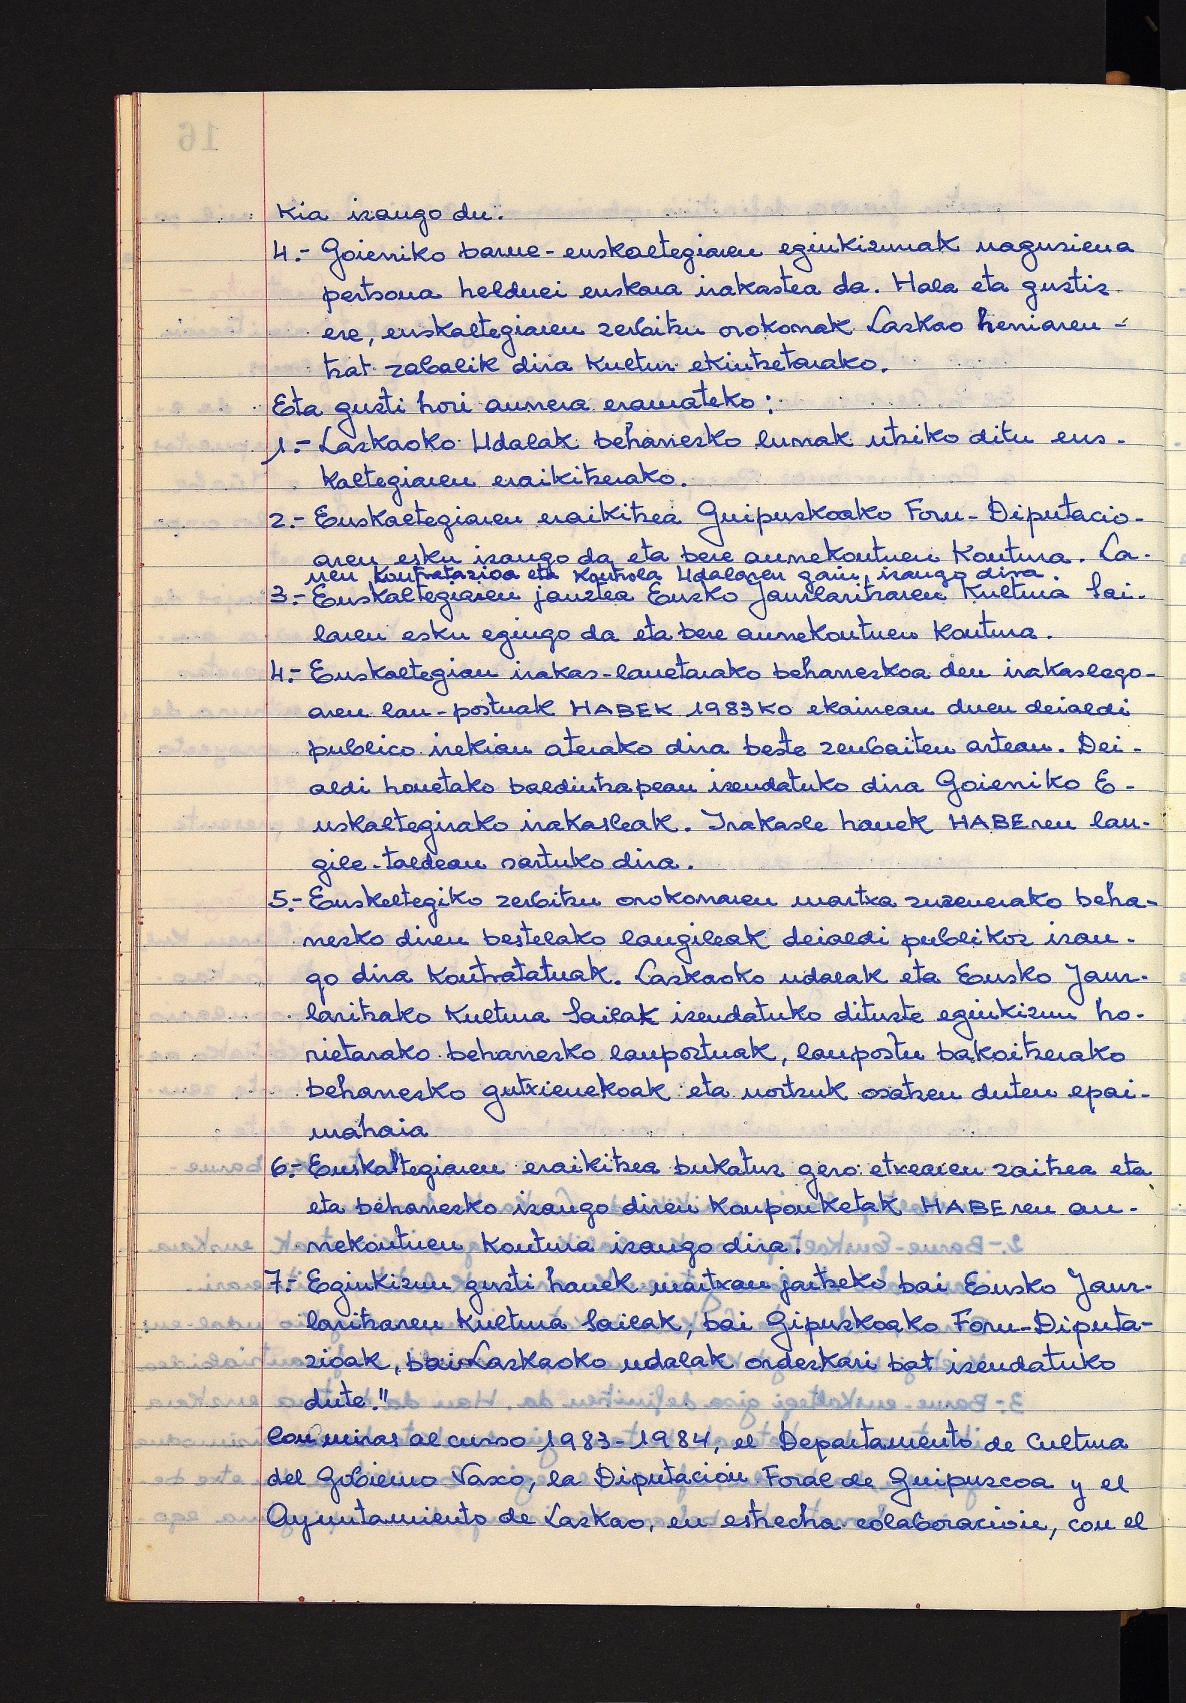 kia izango du.
4.- Goierriko barne-euskaltegiaren eginkizunak nagusiena
pertsona helduei euskara irakastea da. Hala eta guztiz
ere, euskaltegiaren zerbitzu orokorrak Lazkao herriaren-
tzat zabalik dira kultur ekintzetarako.
Eta guzti hori aurrera eramateko:
1.- Lazkaoko Udalak beharrezko lurrak utziko ditu eus-
kaltegiaren eraikitzerako.
2.- Euskaltegiaren eraikitzea Guipuzkoako Foru-Diputacio-
aren esku izango da eta bere aurrekontuen kontura. La-
nen kontratazioa eta kontrola Udalaren gain, izango dira.
3.- Euskaltegiaren janztea Eusko Jaurlaritzaren Kultura Sai-
laren esku egingo da eta bere aurrekontuen kontura.
4.- Euskaltegian irakas-lanetarako beharrezkoa den irakaslego-
aren lan-postuak HABEK 1983ko ekainean duen deialdi
publico irekian aterako dira beste zenbaiten artean. Dei-
aldi honetako baldintzapean izendatuko dira Goierriko E-
uskaltegirako irakasleak. Irakasle hauek HABEren lan-
gile-taldean sartuko dira.
5.- Euskeltegiko zerbitzu orokorraren martxa zuzenerako beha-
rrezko diren bestelako langileak deialdi publikoz izan-
go dira kontratatuak. Lazkaoko udalak eta Eusko Jaur-
laritzako Kultura Sailak izendatuko dituzte eginkizun ho-
rietarako beharrezko lanpostuak, lanpostu bakoitzerako
beharrezko gutxienekoak eta nortzuk osatzen duten epai-
mahaia
6.- Euskaltegiaren eraikitzea bukatuz gero etxearen zaitzea eta
eta beharrezko izango diren konponketak HABEren au-
rrekontuen kontura izango dira.
7.- Eginkizun guzti hauek martxan jartzeko bai Eusko Jaur-
laritzaren Kultura Sailak, bai Gipuzkoako Foru-Diputa-
zioak, bai Lazkaoko udalak ordezkari bat izendatuko
dute."
Con miras al curso 1983-1984, el Departamento de Cultura
del Gobierno Vasco, la Diputación Foral de Guipuzcoa y el
Ayuntamiento de Lazkao, en estrecha colaboración, con el